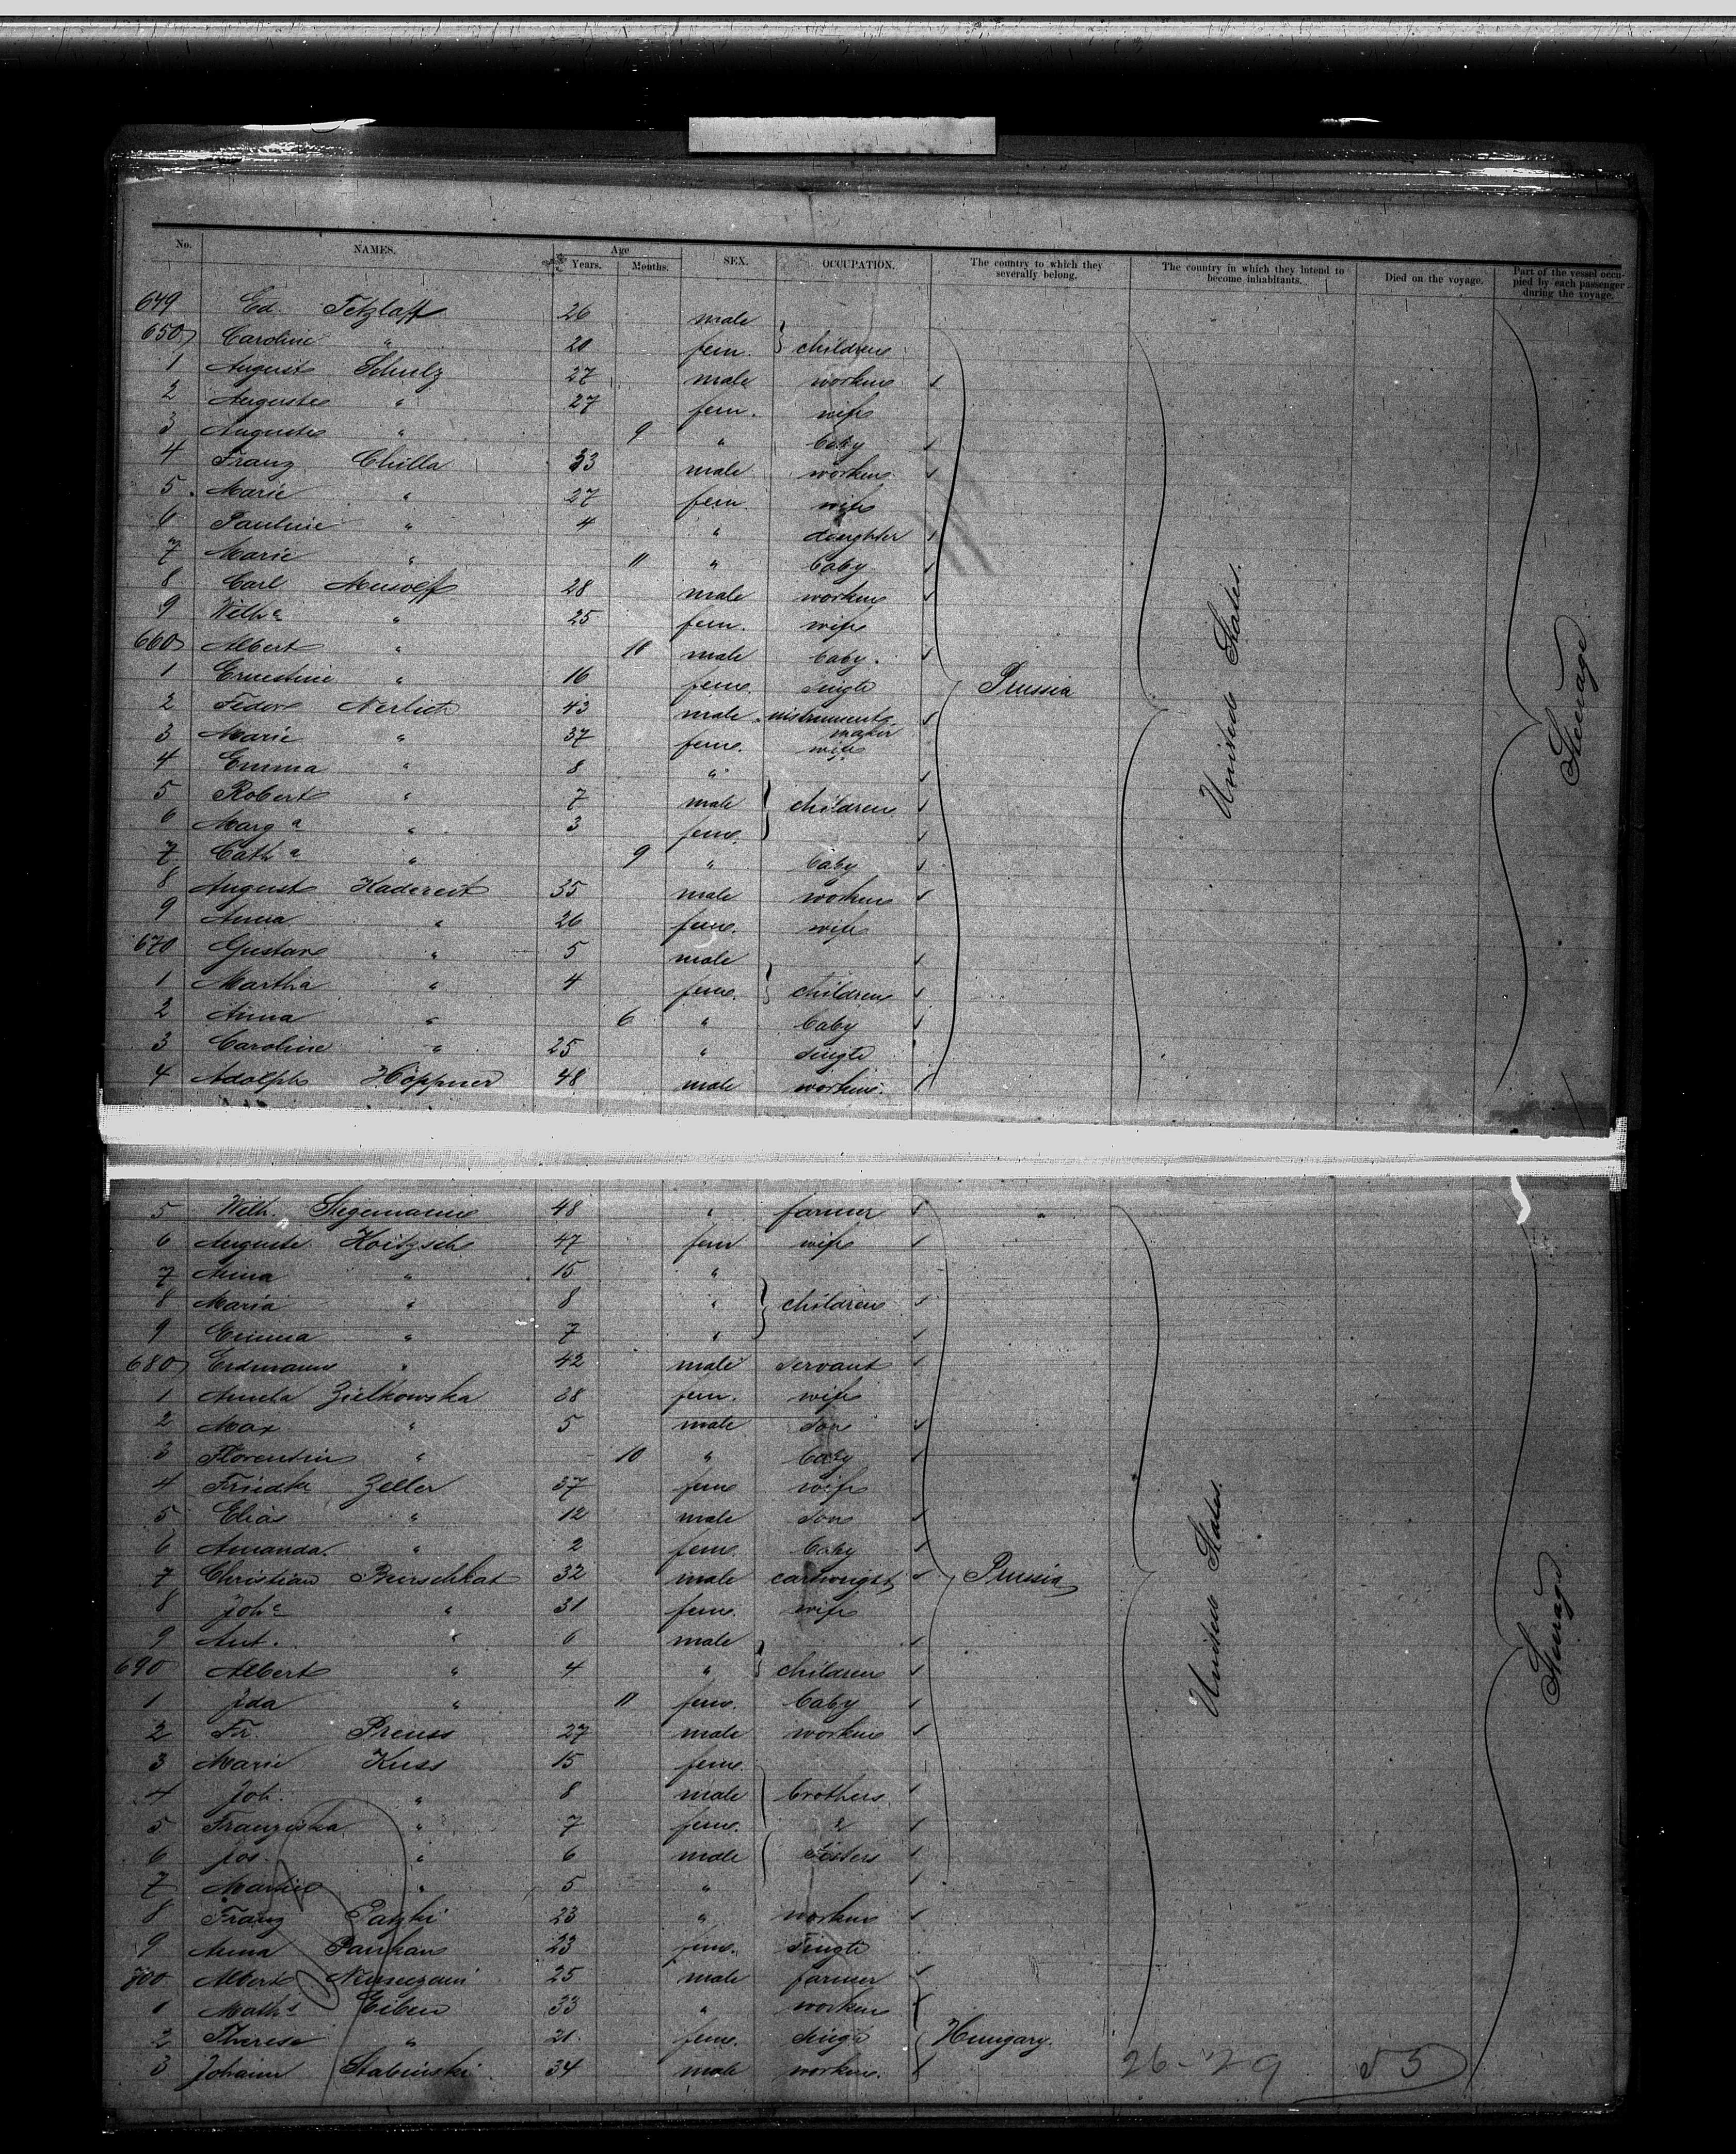 No. NAMES. Age Years. Months. SEX. OCCUPATION. The country to which they severally belong. The country in which they intend to become inhabitants. Died on the voyage. Part of the vessel occupied by each passenger during the voyage.
649 Ed. Tetzlaff 26 male
650 Caroline " 20 fem. } children
1 August Schulz 27 male workm
2 Auguste " 27 fem. wife
3 Auguste " 9 " baby
4 Franz Chilla 33 male workm
5 Marie " 27 fem. wife
6 Pauline " 4 " daughter
7 Marie " 11 " baby
8 Carl Musolff 28 male workm
9 Wilh.a " 25 fem. wife
660 Albert " 10 male baby.
1 Ernestine " 16 fem. single Prussia United States. Steerage
2 Fedor Nerlich 43 male instrument maker
3 Marie " 37 fem. wife
4 Emma " 8 "
5 Robert " 7 male } children
6 Marg.a " 3 fem.
7 Cath.a " 9 " baby
8 August Kadereit 35 male workm
9 Anna " 26 fem. wife
670 Gustav " 5 male
1 Martha " 4 fem. } children
2 Anna " 6 " baby
3 Caroline " 25 " single
4 Adolph Höppner 48 male workm.
5 Wilh. Stegemann 48 " farmer
6 Auguste Koitzsch 47 fem wife
7 Anna " 15 "
8 Maria " 8 " } children
9 Emma " 7 "
680 Erdmann " 42 male servant
1 Zielkowska fem. wife
2 Max " 5 male son
3 Florentin " 10 " baby
4 Friedke Zeller 37 fem wife
5 Elias " 12 male son
6 Amanda " 2 fem. baby
7 Christian 32 male cartwright Prussia United States. Steerage
8 Joh.e " 31 fem. wife
9 Aut. " 6 male
690 Albert " 4 " } children
1 Ida " 11 fem. baby
2 Fr. Preuss 27 male workm
3 Marie Kuss 15 fem.
4 Joh. " 8 male brothers
5 Franziska " 7 fem. &
6 Jos. " 6 male sisters
7 " 5 "
8 Franz 23 " workm
9 Anna 23 fem. single
700 Albert 25 male farmer
1 Maths Eiben 33 " workm
2 Therese " 21 fem. single } Hungary.
3 Johann Stabinski 34 male workm.
26-29 53